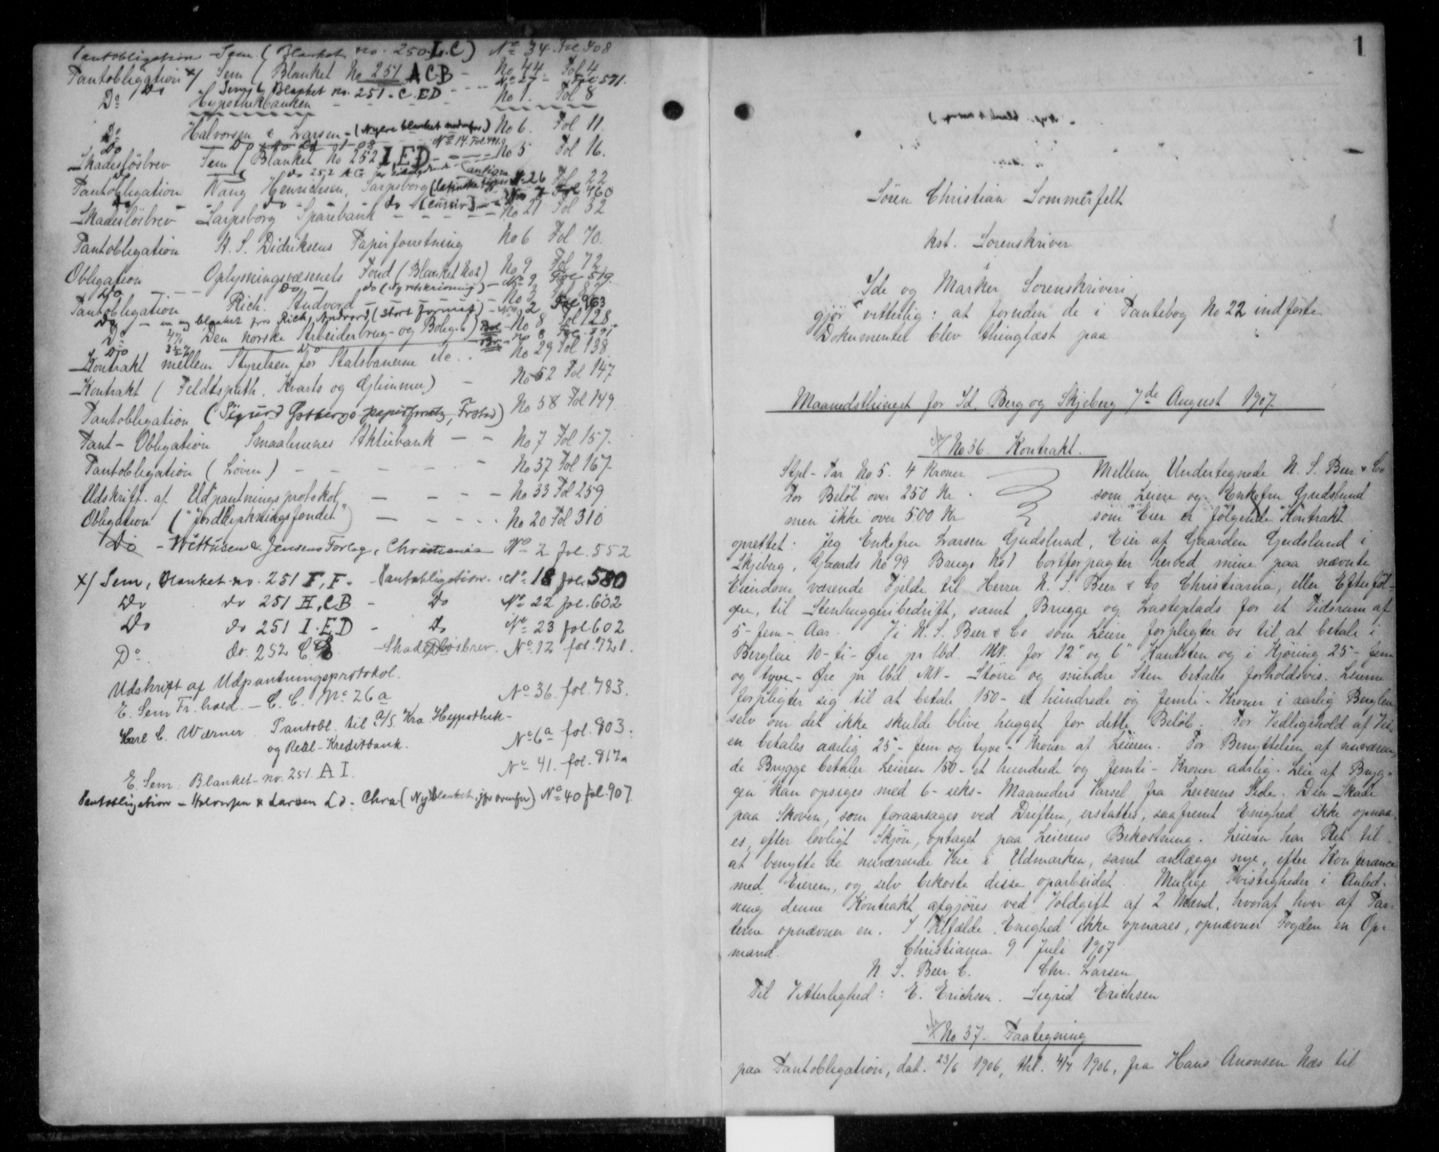 Pantobligation - Sem (Blanket no. 250 I.C) No 34 Fol 408
Pantobligation x/ Sem (Blanket No 251 A C B - No 44 Fol 4
Do Sem, Blanket no. 251 - C. ED - No 27 - Fol 571
Do Hypothekbanken - - - No 1. Fol 8
Do Halvorsen & Larsen - (Nyere blanket nedenfor) No 6. Fol 11.
Skadesløsbrev Sem (Blanket No 252 I, ED - - - No 5 Fol 16.
Pantobligation Wang Henrichsen, Sarpsborg No 26 Fol 22
Do Do Do No 7 Fol 460
Skadesløsbrev Sarpsborg Sparebank - - - No 21 Fol 52
Pantobligation H. S. Didriksens Papirforretning No 6 Fol 70.
Obligation Oplysningsvæsenets Fond (Blanket No 2) No 9 Fol 72
Do Do Do (Ny utskrivning) - No 9 Fol 519
Pantobligation Rich. Andvord
Do - blanket fra Rich. Andvord (stort format) - No 2 Fol 963
Do Den norske Arbeiderbrug- og Boligb. No 8 Fol 128
Kontrakt mellem Styrelsen for Statsbanerne etc. . No 29 Fol 138
Kontrakt (Feldtspath, Kvarts og Glimmer) - No 52 Fol 147
Pantobligation No 58 Fol 149.
Pant- Obligation Smaalenenes Aktiebank - - No 7 Fol 157.
Pantobligation (Løven) - - - - No 37 Fol 167.
Udskrift af Udpantningsprotokol - - - No 33 Fol 259
Obligation ("Jorddyrkningsfondet") - - - No 20 Fol 310
Do - Wittusen & Jensens Forlag, Christiania No 2 fol. 552
x/ Sem, Blanket no. 251 F, F. - Pantobligation. No 18 fol. 580
Do do 251 H, C B - Do No 22 fol. 602
Do do 251 I. ED - do No 23 fol 602
Do do. 252 - Skadesløsbrev. No 12 fol. 721.
Udskrift af Udpantningsprotokol.
E. Sem Fr.hald. - E. C. No 26 a No 36. fol. 783.
Karl C. Wærner Pantobl. til A/S Kra Hypothek-
og Real-Kreditbank. No 6a fol. 803.
E. Sem. Blanket no. 251. A I. No 41. fol. 817a
Pantobligation - Halvorsen & Larsen Ld. Chra (Ny blanket jfr. ovenfor) No 40 fol. 907
1
Søren Christian Sommerfelt
kst. Sorenskriver
i
Ide og Marker Sorenskriveri
gjør vitterlig: at foruden de i Pantebog No 22 indførte
Dokumenter blev thinglæst paa
Maanedsthinget for Id, Berg og Skjeberg 7de August 1907.
No 36. Kontrakt.
Stpl- Pap. No 5. 4 Kroner Mellem Undertegnede N. S. Beer & Co
For Beløb over 250 Kr. som Leiere og Enkefru Gudslund
men ikke over 500 Kr som Eier er følgende Kontrakt
oprettet. Jeg Enkefru Larsen Gudslund, Eier af Gaarden Gudslund i
Skjeberg, Gaards No 99 Brugs No 1 bortforpagter herved mine paa nævnte
Eiendom værende Fjelde til Herrer N. S. Beer & Co Christiania, eller Efterføl-
gere, til Stenhuggeribedrift, samt Brygge og Lasteplads for et Tidsrum af
5 - fem - Aar. Vi N. S. Beer & Co som Leiere forpligter os til at betale i
Bergleie 10 - ti - Øre pr lbd. Mtr. for 12" og 6" Kantsten og i Kjøring 25 - fem
og tyve - Øre pr lbd Mtr. - Større og mindre Sten betales forholdsvis. Leieren
forpligter sig til at betale 150 - et hundrede og femti - Kroner i aarlig Bergleie
selv om det ikke skulde blive hugget for dette Beløb. For Vedligehold af Vei-
en betales aarlig 25 - fem og tyve - Kroner af Leieren. For Benyttelsen af nuværen-
de Brygge betaler Leieren 150 - et hundrede og femti - Kroner aarlig. Leie af Bryg-
gen kan opsiges med 6 - seks - Maaneders Varsel fra Leierens Side. Den Skade
paa Skoven, som foraarsages ved Driften, erstattes, saafremt Enighed ikke opnaa-
es, efter lovligt Skjøn, optaget paa Leierens Bekostning. Leieren har Ret til
at benytte de nuværende Veie i Udmarken, samt anlægge nye, efter Konferance
med Eieren, og selv bekoste disse oparbeidet. Mulige Tvistigheder i Anled-
ning denne Kontrakt afgjøres ved Voldgift af 2 Mænd, hvoraf hver af Par-
terne opnævner en. I Tilfælde Enighed ikke opnaaes, opnævner Fogden en Op-
mand.
Christiania 9 Juli 1907
N. S. Beer C. Chr. Larsen
Til Vitterlighed: E. Erichsen. Sigrid Erichsen
No 37. Paategning
paa Pantobligation, dat. 23/6 1906, thl. 4/7 1906, fra Hans Anonsen Næs til